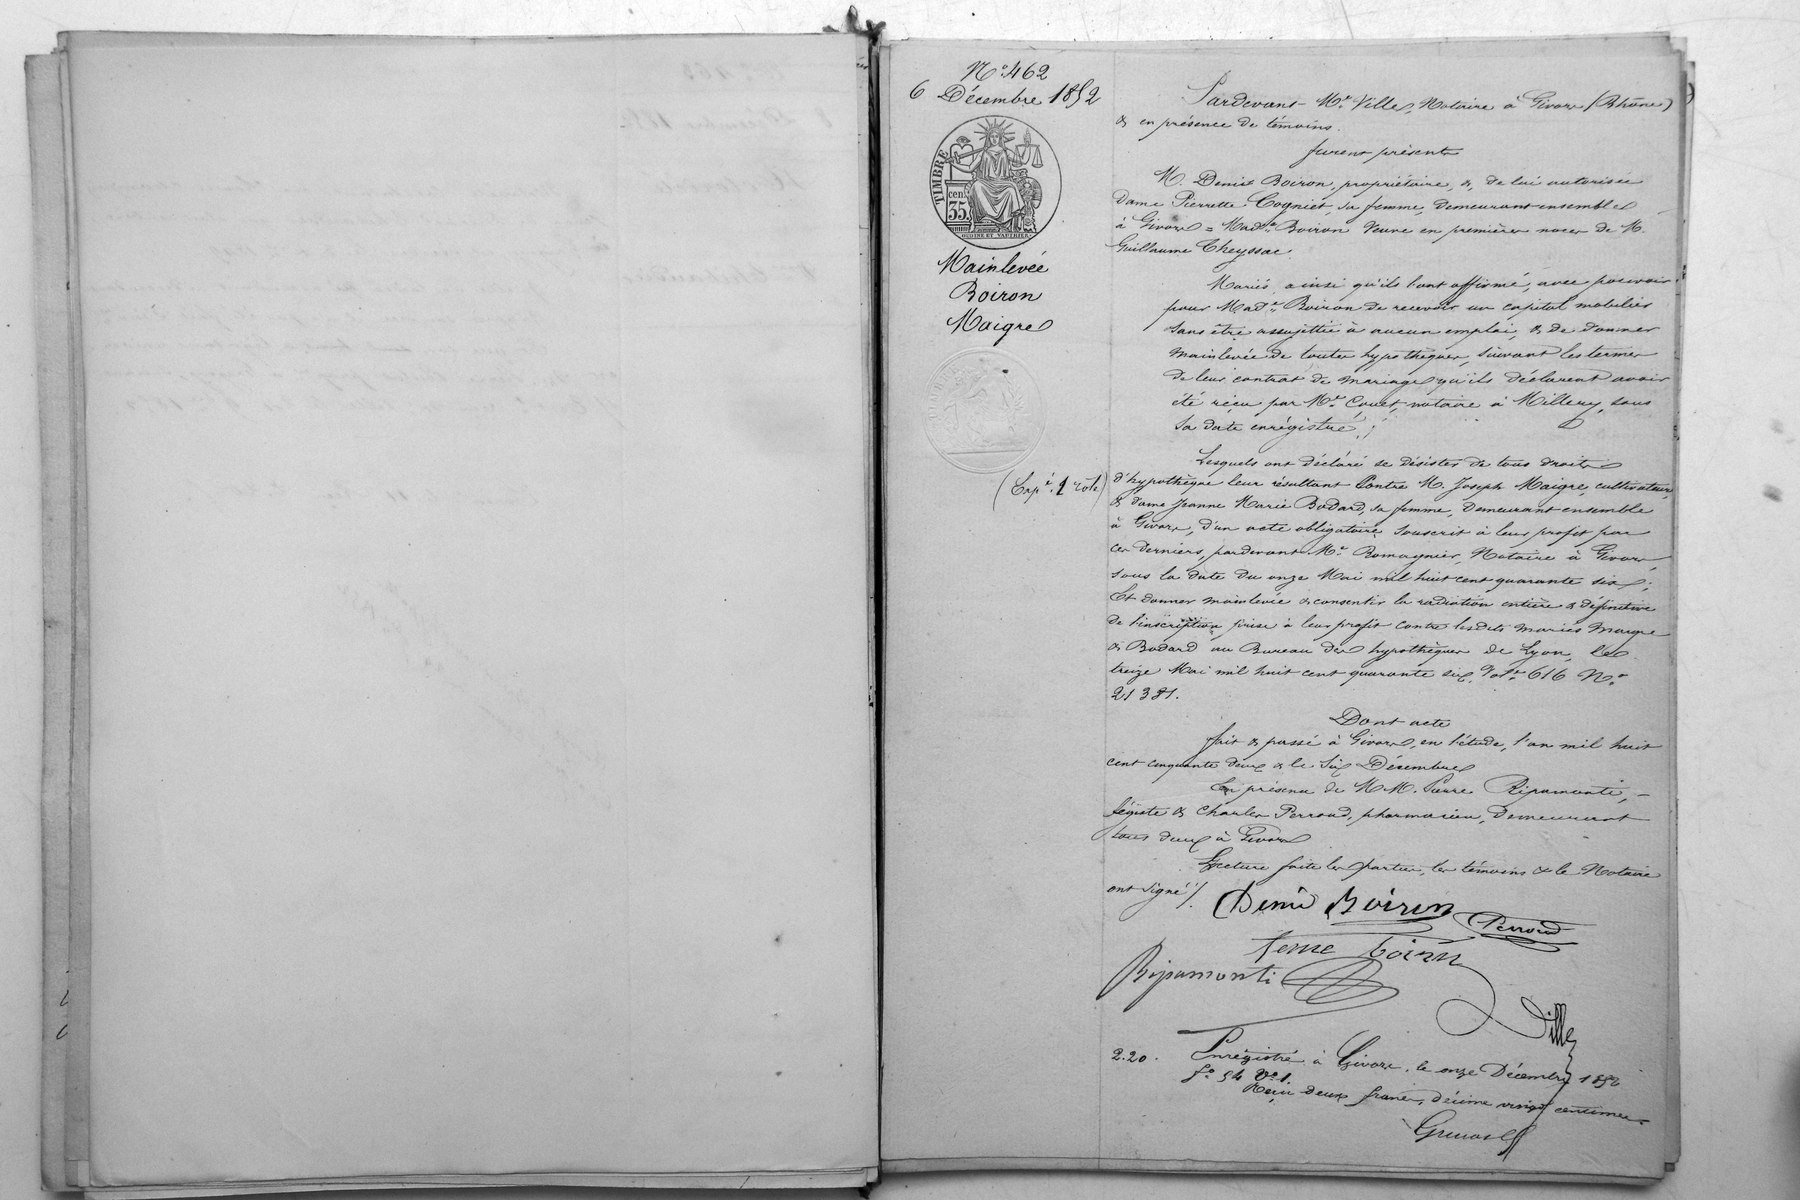 N° 462
6 Décembre 1852
TIMBRE
35 cent
OUDINÉ ET VAUTHIER
Mainlevée
Boiron
Maigre
(Expé. 1 role)
Pardevant Me Ville, Notaire à Givors (Rhône)
& en présence de témoins.
furent présents
M. Denis Boiron, propriétaire, &, de lui autorisée
Dame Pierrette Cogniet, sa femme, demeurant ensemble
à Givors = Made Boiron veuve en premières noces de M.
Guillaume Cheyssac.
Mariés, ainsi qu'ils l'ont affirmé, avec pouvoir
pour Made Boiron de recevoir un capital mobilier
sans être assujettie à aucun emploi, & de donner
mainlevée de toutes hypothèques, suivant les termes
de leur contrat de mariage qu'ils déclarent avoir
été reçu par Me Couet, notaire à Millery, sous
sa date enrégistré ;/
Lesquels ont déclaré se désister de tous droits
d'hypothèque leur résultant contre M. Joseph Maigre, cultivateur,
& dame Jeanne Marie Bodard, sa femme, demeurant ensemble
à Givors, d'un acte obligatoire souscrit à leur profit par
ces derniers, pardevant Me Romagnier, Notaire à Givors,
sous la date du onze Mai mil huit cent quarante six ;
Et donner mainlevée & consentir la radiation entière & définitive
de l'inscription prise à leur profit contre lesdits mariés Maigre
& Bodard au Bureau des hypothèques de Lyon, le
treize Mai mil huit cent quarante six, Vole 616 N°
2138.
Dont acte
fait & passé à Givors, en l'étude, l'an mil huit
cent cinquante deux & le six Décembre
En présence de M.M. Pierre Ripamonti,
légiste & Charles Perroud, pharmacien, demeurant
tous deux à Givors
Lecture faite les parties, les témoins & le Notaire
ont signé ./.
Denis Boiron
Perroud
feme boiron
Ripamonti
Ville
2.20.
Enregistré à Givors, le onze Décembre 1852
f° 54 V° 1.
Reçu deux francs, décime vingt centimes